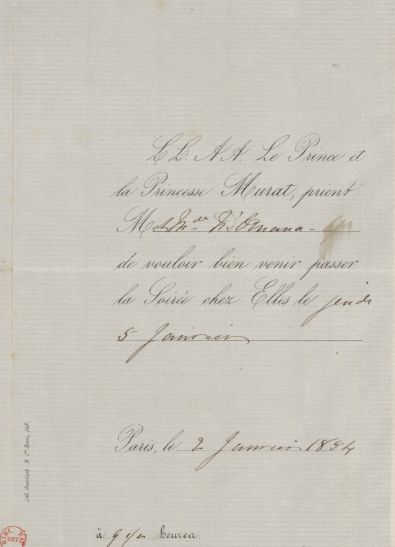 LL. AA. Le Prince et
la Princesse Murat, prient
M et Mde D'Ornano
de vouloir bien venir passer
la Soirée chez Elles le jeudi
5 Janvier
Paris, le 2 Janvier 1854
à 9 heures